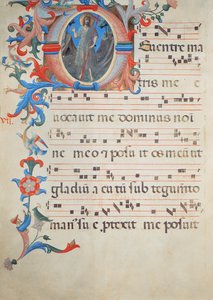 E uentre ma
tris me e
uocauit me dominus noi
ne meo & posuit os meu ut
gladiu acutu sub tegumto
man' sue ptexit me posuit